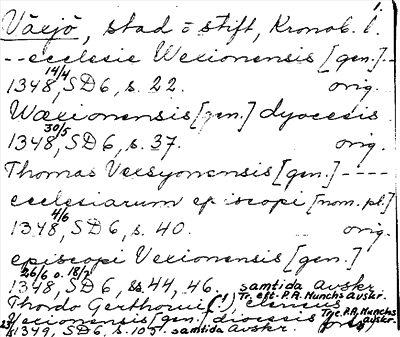 1.
Växjö, stad o stift, Kronob. l.
-- ecclesie Wexionensis [gen.] --
1348 14/4, SD 6, s. 22. orig.
Wæxionensis [gen.] dyocesis
1348 30/5, SD 6, s. 37. orig.
Thomas Vexsyonensis [gen.] ----
ecclesiarum episcopi [nom. pl.]
1348 4/6, SD 6, s. 40. orig.
episcopi Vexionensis [gen.]
1348 26/6 o. 18/7, SD 6, ss. 44, 46. samtida avskr.
Thordo Gerthorui (1) clericus Tr. eft. P.A. Munchs Avskr.
Vexionensis [gen.] diocesis
1349, SD 6, s. 105. samtida avskr. Tr. e. P.A. Munchs avskr.